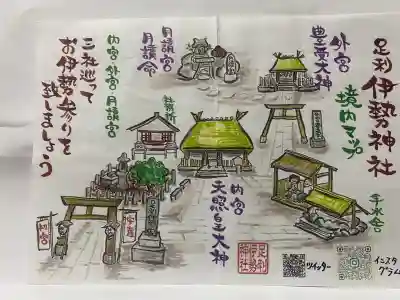 足利伊勢神社
境内マップ
外宮
豊受大神
月讀宮
月讀命
内宮 外宮 月讀宮
三社巡って
お伊勢参りを
致しましょう
手水舎
内宮
天照皇大神
ツイッター
インスタグラム